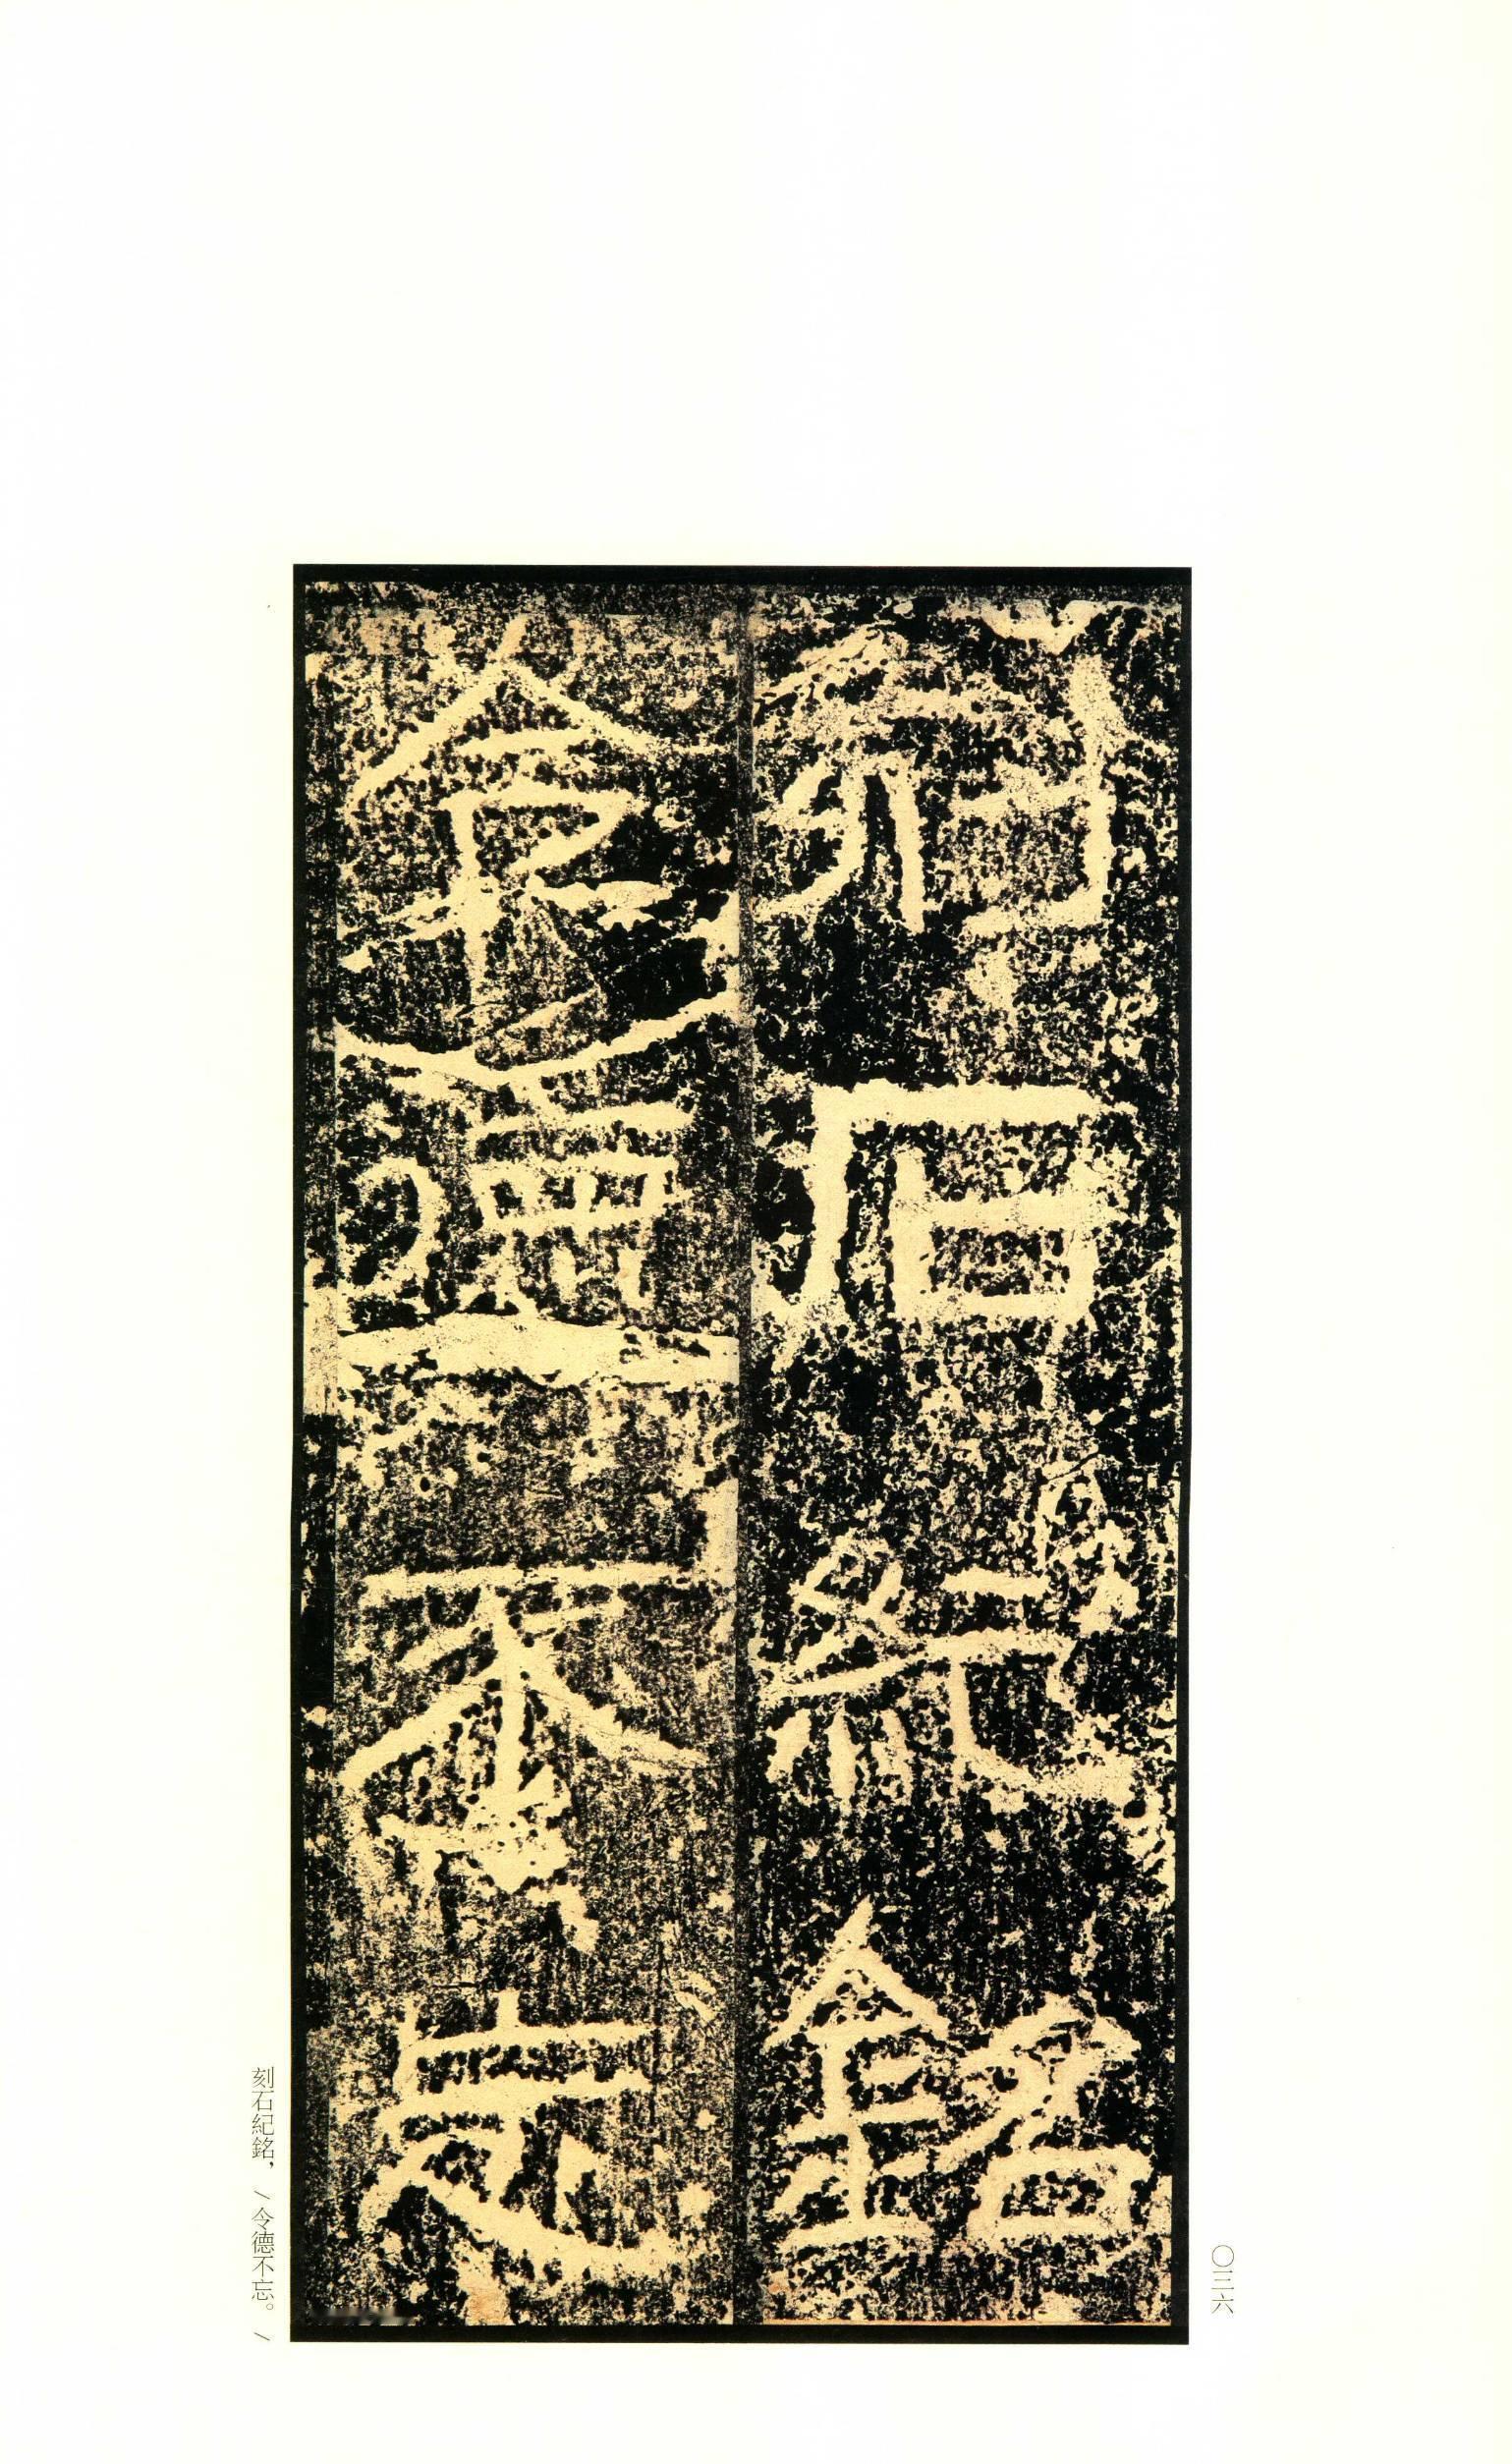 刻石紀銘
令德不忘
刻石紀銘，/令德不忘。/
〇三六